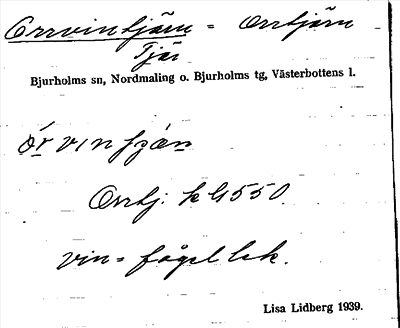 Orrvintjärn = Orrtjärn
Tjär
Bjurholms sn, Nordmaling o. Bjurholms tg, Västerbottens l.
Orrtj: k G550.
vin = fågellek.
Lisa Lidberg 1939.